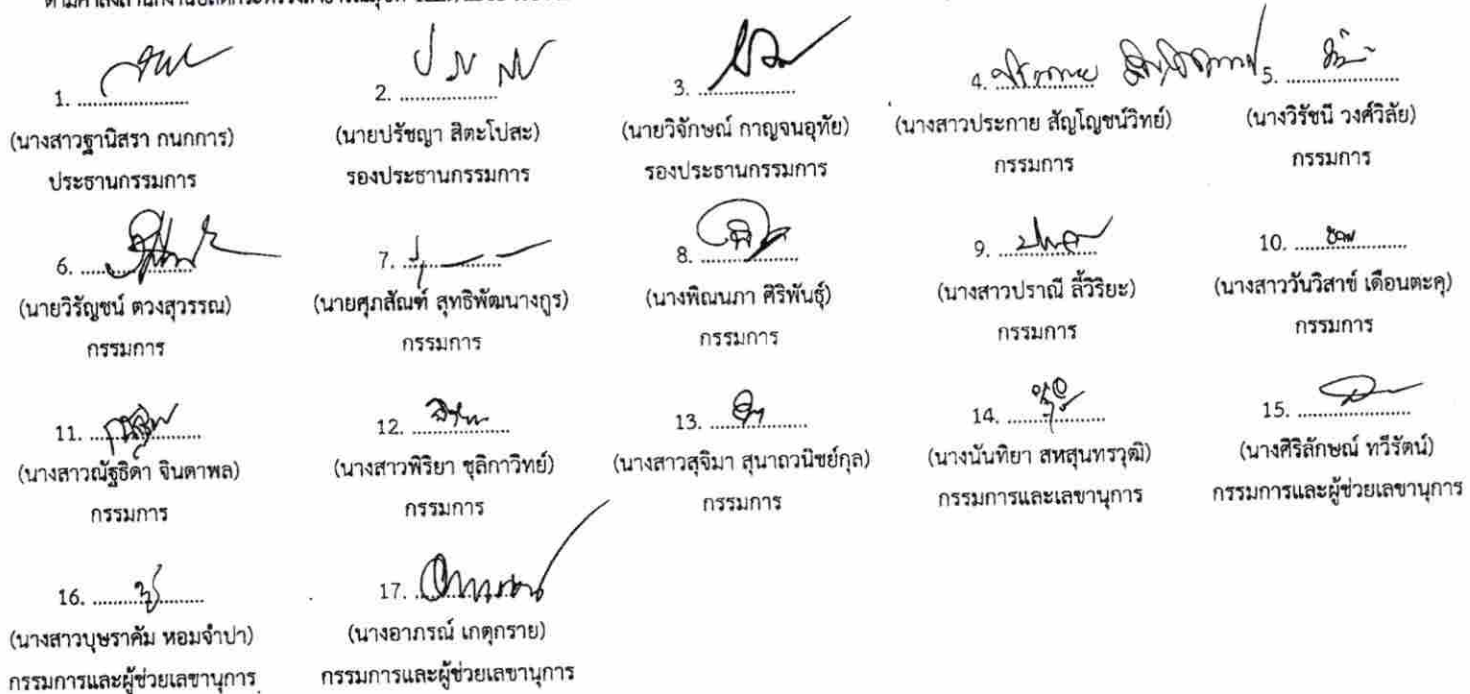 1. ....................
(นางสาวฐานิสรา กนกการ)
ประธานกรรมการ
2. ....................
(นายปรัชญา สิตะโปสะ)
รองประธานกรรมการ
3. ....................
(นายวิจักษณ์ กาญจนอุทัย)
รองประธานกรรมการ
4. ....................
(นางสาวประกาย สัญโญชน์วิทย์)
กรรมการ
5. ....................
(นางวิรัชนี วงศ์วิลัย)
กรรมการ
6. ....................
(นายวิรัญชน์ ตวงสุวรรณ)
กรรมการ
7. ....................
(นายศุภสัณฑ์ สุทธิพัฒนางกูร)
กรรมการ
8. ....................
(นางพิณนภา ศิริพันธุ์)
กรรมการ
9. ....................
(นางสาวปราณี ลิ้วิริยะ)
กรรมการ
10. ....................
(นางสาววันวิสาข์ เดือนตะคุ)
กรรมการ
11. ....................
(นางสาวณัฐธิดา จินดาพล)
กรรมการ
12. ....................
(นางสาวพิริยา ชุลิกาวิทย์)
กรรมการ
13. ....................
(นางสาวสุจิมา สุนาถวนิชย์กุล)
กรรมการ
14. ....................
(นางนันทิยา สหสุนทรวุฒิ)
กรรมการและเลขานุการ
15. ....................
(นางศิริลักษณ์ ทวีรัตน์)
กรรมการและผู้ช่วยเลขานุการ
16. ....................
(นางสาวบุษราคัม หอมจำปา)
กรรมการและผู้ช่วยเลขานุการ
17. ....................
(นางอาภรณ์ เกตุกราย)
กรรมการและผู้ช่วยเลขานุการ